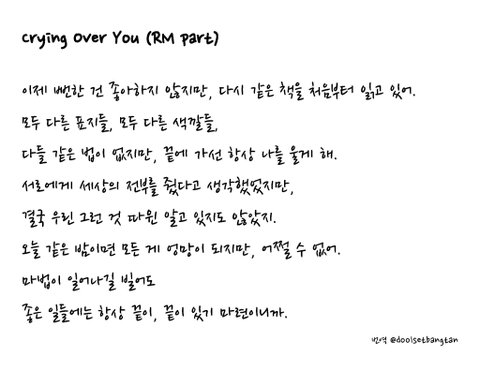 Crying Over You (RM part)
이제 뻔한 건 좋아하지 않지만, 다시 같은 책을 처음부터 읽고 있어.
모두 다른 표지들, 모두 다른 색깔들,
다들 같은 법이 없지만, 끝에 가선 항상 나를 울게 해.
서로에게 세상의 전부를 줬다고 생각했었지만,
결국 우린 그런 것 따윈 알고 있지도 않았지.
오늘 같은 밤이면 모든 게 엉망이 되지만, 어쩔 수 없어.
마법이 일어나길 빌어도
좋은 일들에는 항상 끝이, 끝이 있기 마련이니까.
번역 @doolsetbangtan